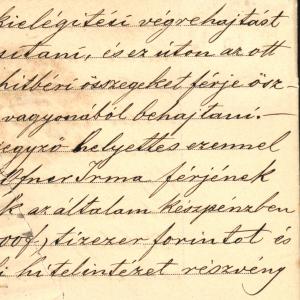 kielégitési végrehajtást
sitani, és ez úton az ott
hitbéri összegeket férje ösz-
vagyonából behajtani.-
egyző helyettes ezennel
Ofner Irma férjének
k az általam készpénzben
000f, tizezer forintot és
i hitelintézet részvény